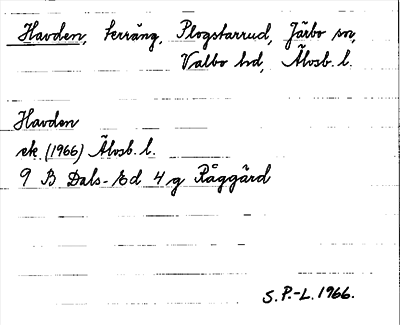 Havden, terräng, Plogstarrud, Järbo sn,
Valbo hd, Älvsb. l.
Havden
ek. (1966) Älvsb. l.
9 B Dals-Ed 4 g Råggärd
S. P.-L. 1966.